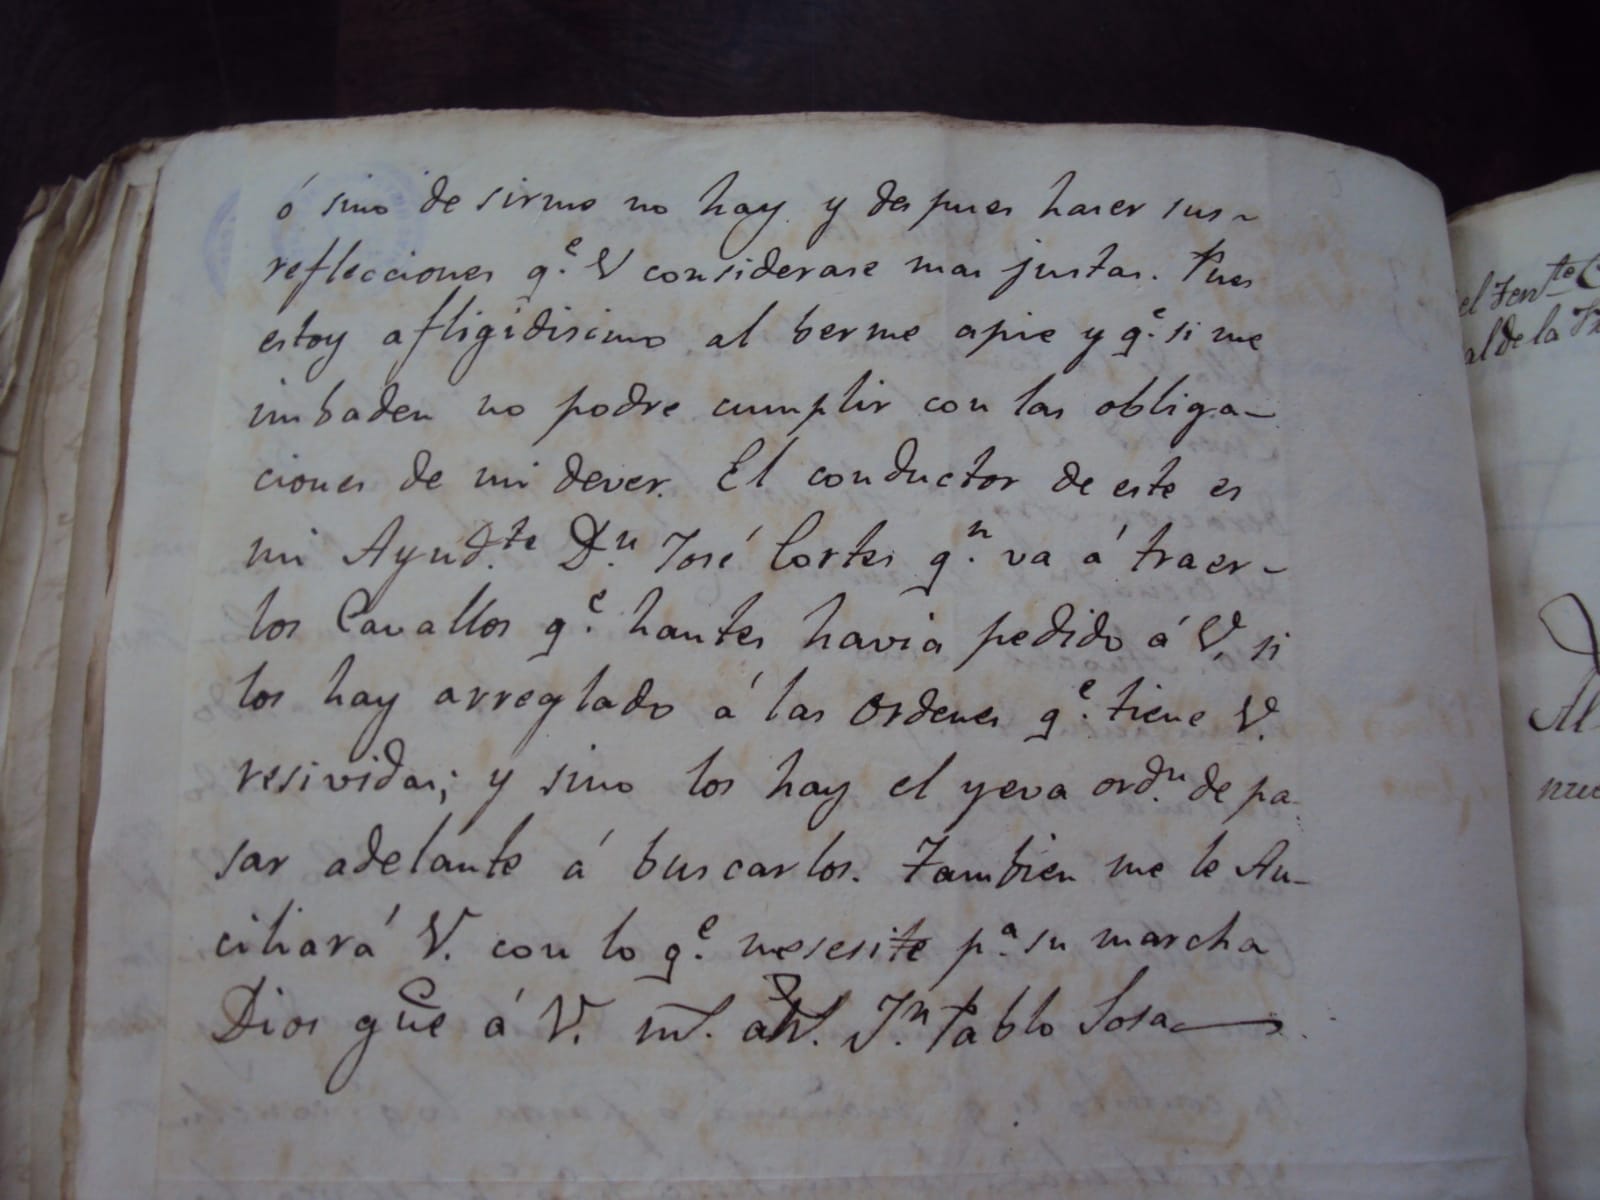 ó sino desirme no hay y despues haser sus
reflecciones q.e V considerase mas justas. Pues
estoy afligidisimo al berme apie y q.e si me
imbaden no podre cumplir con las obliga-
ciones de mi dever. El conductor de este es
mi Ayud.te D.n José Cortes q.n va á traer-
los Cavallos q.e hantes havia pedido á V. si
los hay arreglado á las Ordenes q.e tiene V.
resividas; y sino los hay el yeva ord.n de pa-
sar adelante á buscarlos. Tambien me le Au-
ciliará V. con lo q.e nesesite p.a su marcha
Dios gũe á V. m.s a.s J.n Pablo Sosa
el Ten.te C
al de la
Al
nue